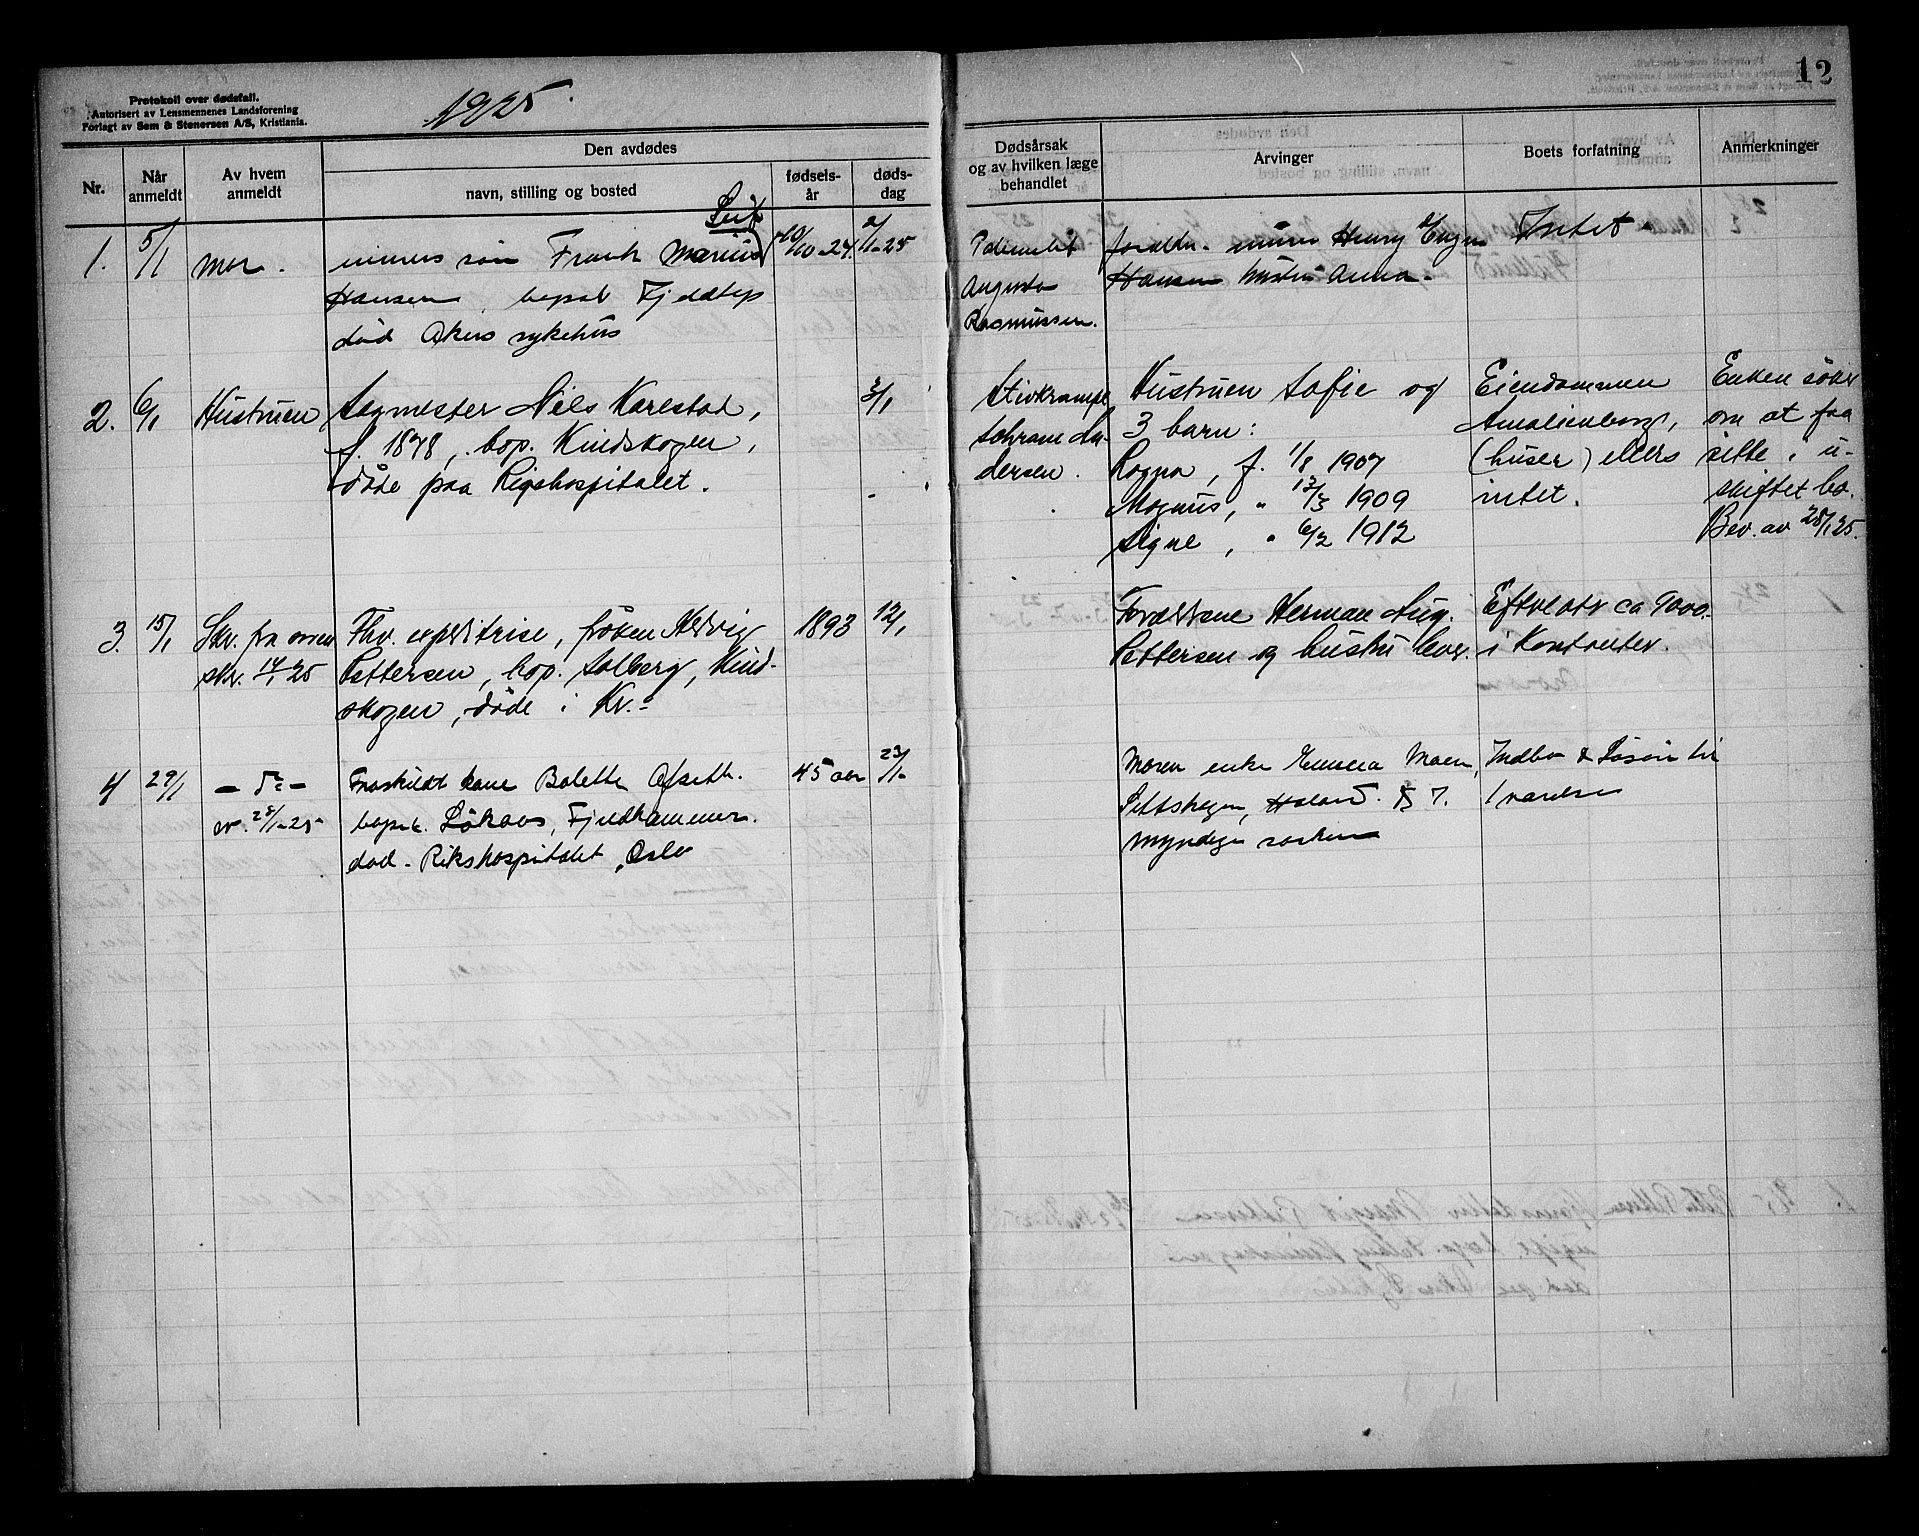 12
1925.
Protokoll over dødsfall.
Autorisert av Lensmennenes Landsforening
Forlagt av Sem & Stenersen A/S, Kristiania.
Nr.
Når anmeldt
Av hvem anmeldt
Den avdødes
navn, stilling og bosted
fødselsår
dødsdag
Dødsårsak og av hvilken læge behandlet
Arvinger
Boets forfatning
Anmerkninger
1. 5/1 mor.
Leif
murers søn Frank Marius 20/10-24. 2/1-25
Hansen bopæl Fjeldtop
død Akers sykehus
Augusta
Rasmussen.
foreldr. murer Henry Eugen
Hansen hustru Anna.
Intet
2. 6/1 Hustruen
Sagmester Nils Karlstad, 3/1
f. 1878, bop. Kindskogen,
døde paa Rigshospitalet.
Stivkrampe
Schrane An-
dersen.
Hustruen Sofie og
3 barn:
Ragna, f. 1/8 1907
Magnus, " 12/3 1909
Signe, " 6/2 1912
Eiendommen
Amalienborg,
(huser) ellers
intet.
Enken søker
om at faa
sitte i u-
skiftet bo.
Bev. av 28/1 25.
3. 15/1 Skr. fra soren
skr. 14/1 25
Fhv. expeditrise, frøken Hedvig 1893 12/1
Pettersen, bop. Solberg, Kind-
skogen, døde i Kr.
Forældrene Herman Aug.
Pettersen og hustru
Efterlatt ca 9000.
i Kontanter.
4 29/1 - Do -
28/1-25
Fraskildt kone Bolette Ofseth. 45 aar 23/1
bopæl. Løkaas, Fjeldhammer.
død. Rikshospitalet, Oslo
Moren enke Emma Moen,
Setskogen, Høland. 7.
myndige søsken
Indbo & Løsøre til